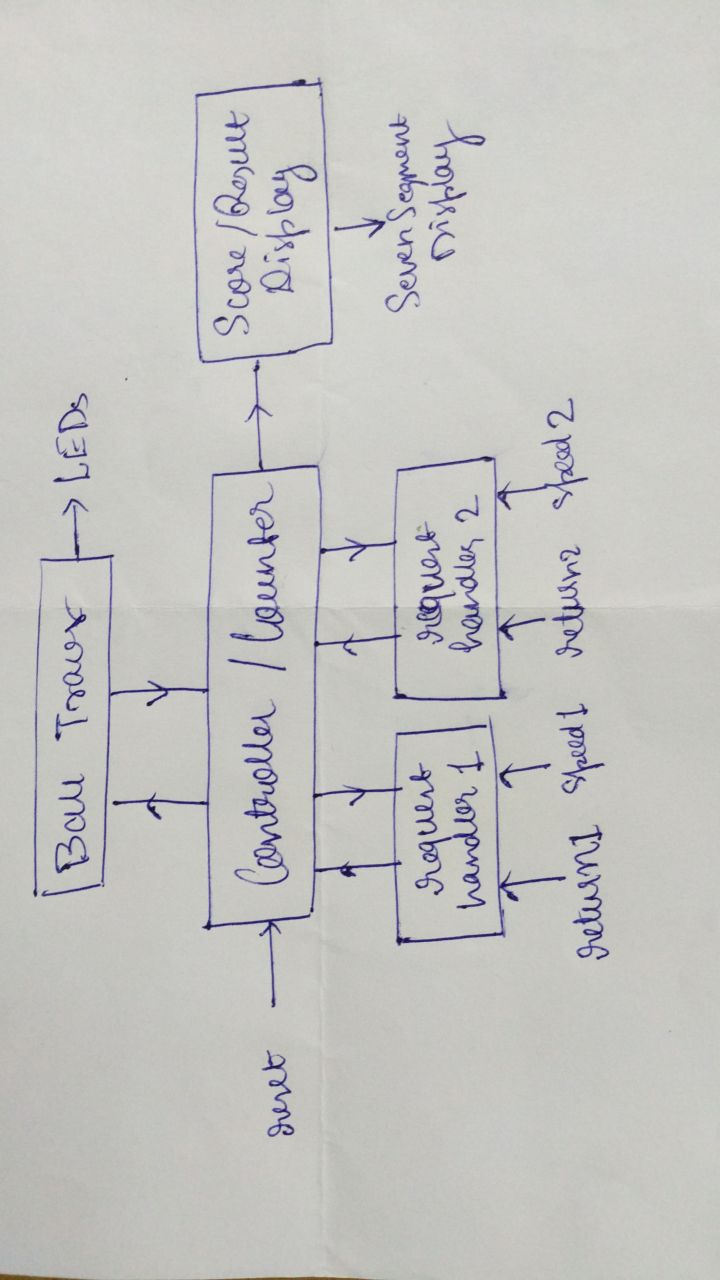 Ball Travex
LEDs
reset
Controller / Counter
Score/Result
Display
Seven Segment
Display
request
handler 1
request
handler 2
return1
speed1
return2
speed2